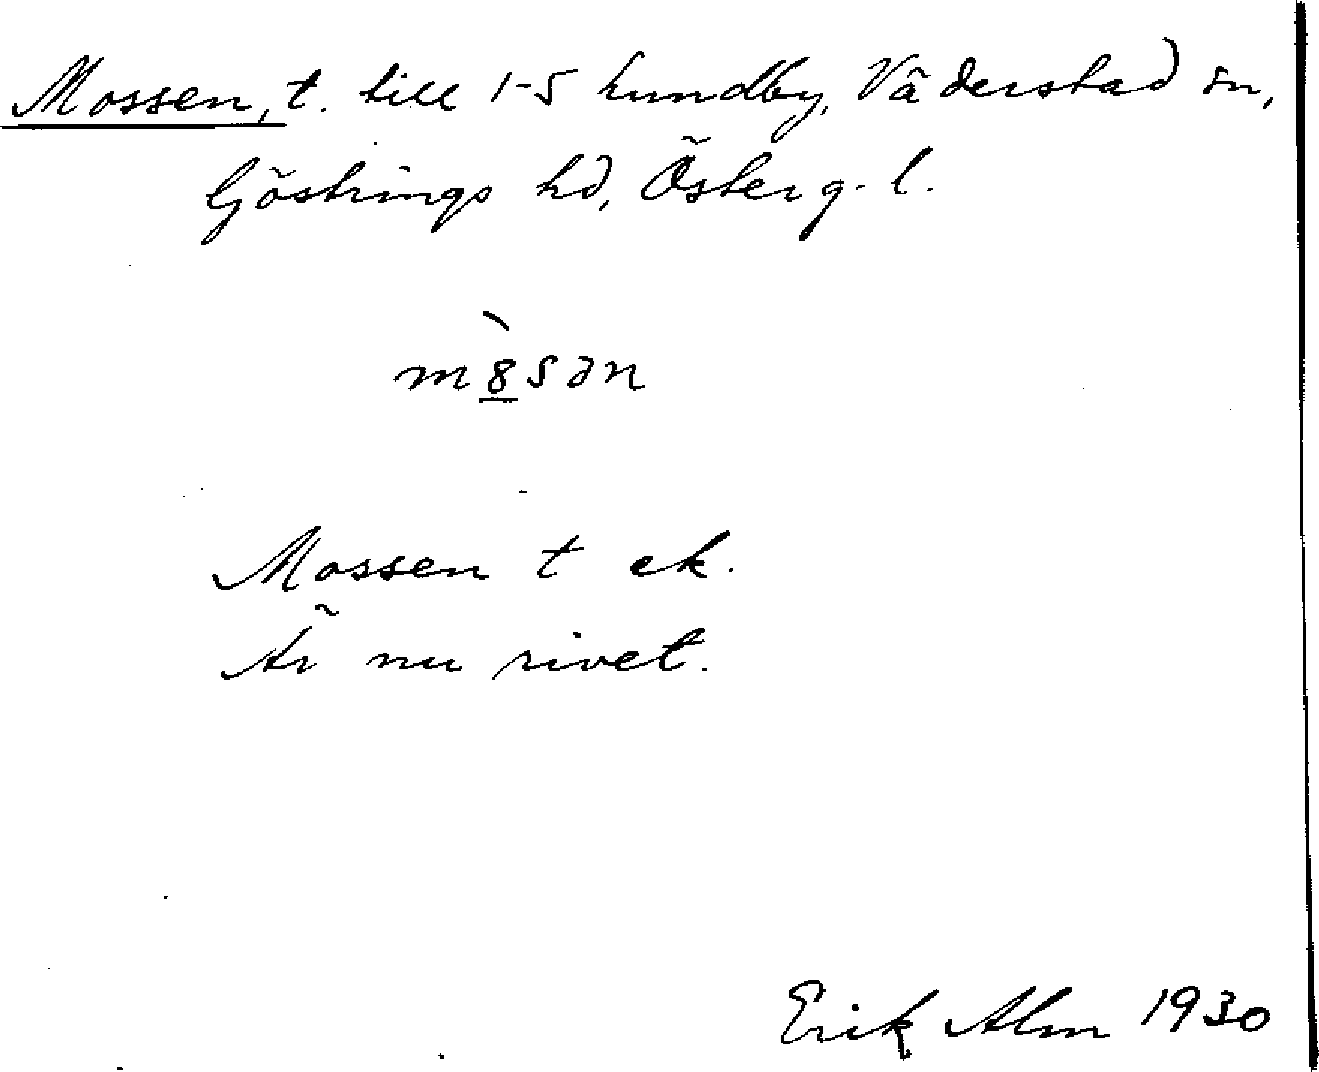 Mossen, t. till 1-5 Lundby, Väderstad sn,
Göstrings hd, Österg. l.
m8sən
Mossen t ek.
Är nu rivet.
Erik Alm 1930